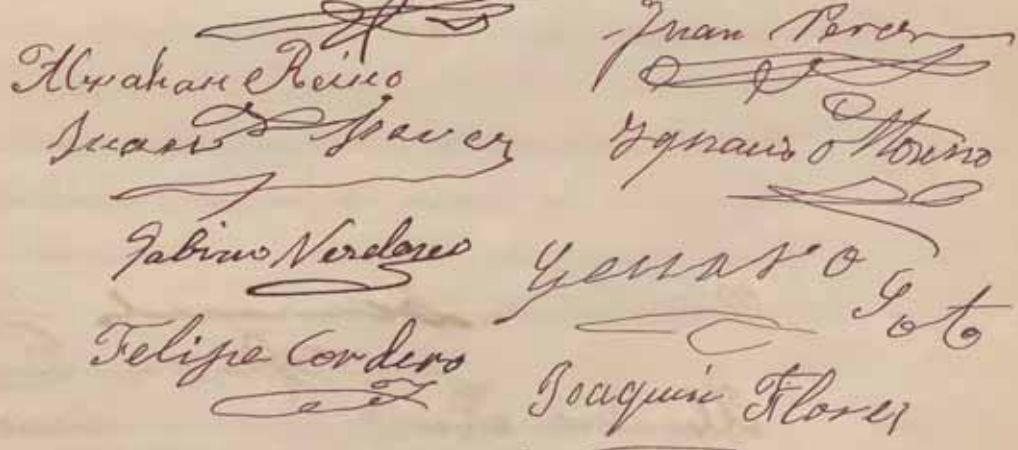 Abrahan Reino
Juan
Gabino Verdejo
Felipe Cordero
Juan Perez
Ygnacio Moreno
Genaro Soto
Joaquin Flores